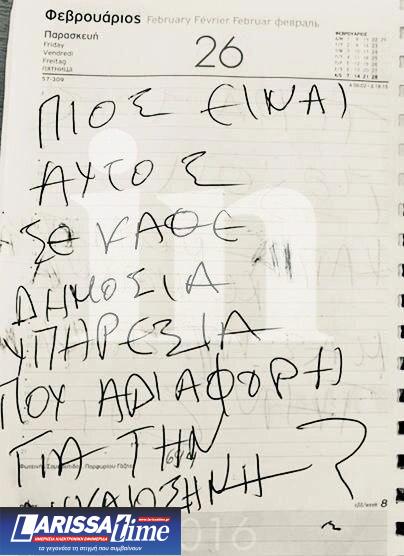 Φεβρουάριος February Février Februar февраль
Παρασκευή
Friday
Vendredi
Freitag
пятница
26
ΦΕΒΡΟΥΑΡΙΟΣ
57-309
ΠΙΟΣ ΕΙΝΑΙ
ΑΥΤΟΣ
ΣΕ ΚΑΘΕ
ΔΗΜΟΣΙΑ
ΥΠΗΡΕΣΙΑ
ΠΟΥ ΑΔΙΑΦΟΡΗ
ΓΙΑ ΤΗΝ
in
εβδ/week 8
2016
LARISSAtime
www.larissatime.gr
ΗΜΕΡΗΣΙΑ ΗΛΕΚΤΡΟΝΙΚΗ ΕΦΗΜΕΡΙΔΑ
τα γεγονότα τη στιγμή που συμβαίνουν